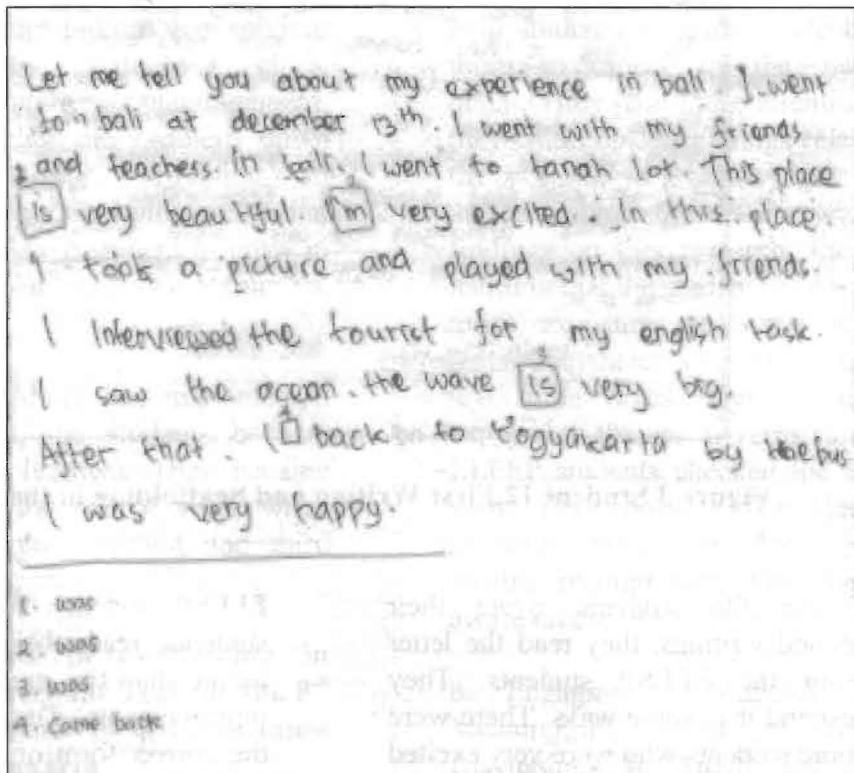 Let me tell you about my experience in bali. I went
to bali at december 13th. I went with my friends
and teachers. In bali. I went to tanah lot. This place
1 is very beautiful. 2 I'm very excited. In this place.
I took a picture and played with my friends.
I interviewed the tourist for my english task.
I saw the ocean. the wave 3 is very big.
After that. I 4 back to Yogyakarta by the bus
I was very happy.
1. was
2. was
3. was
4. Came back